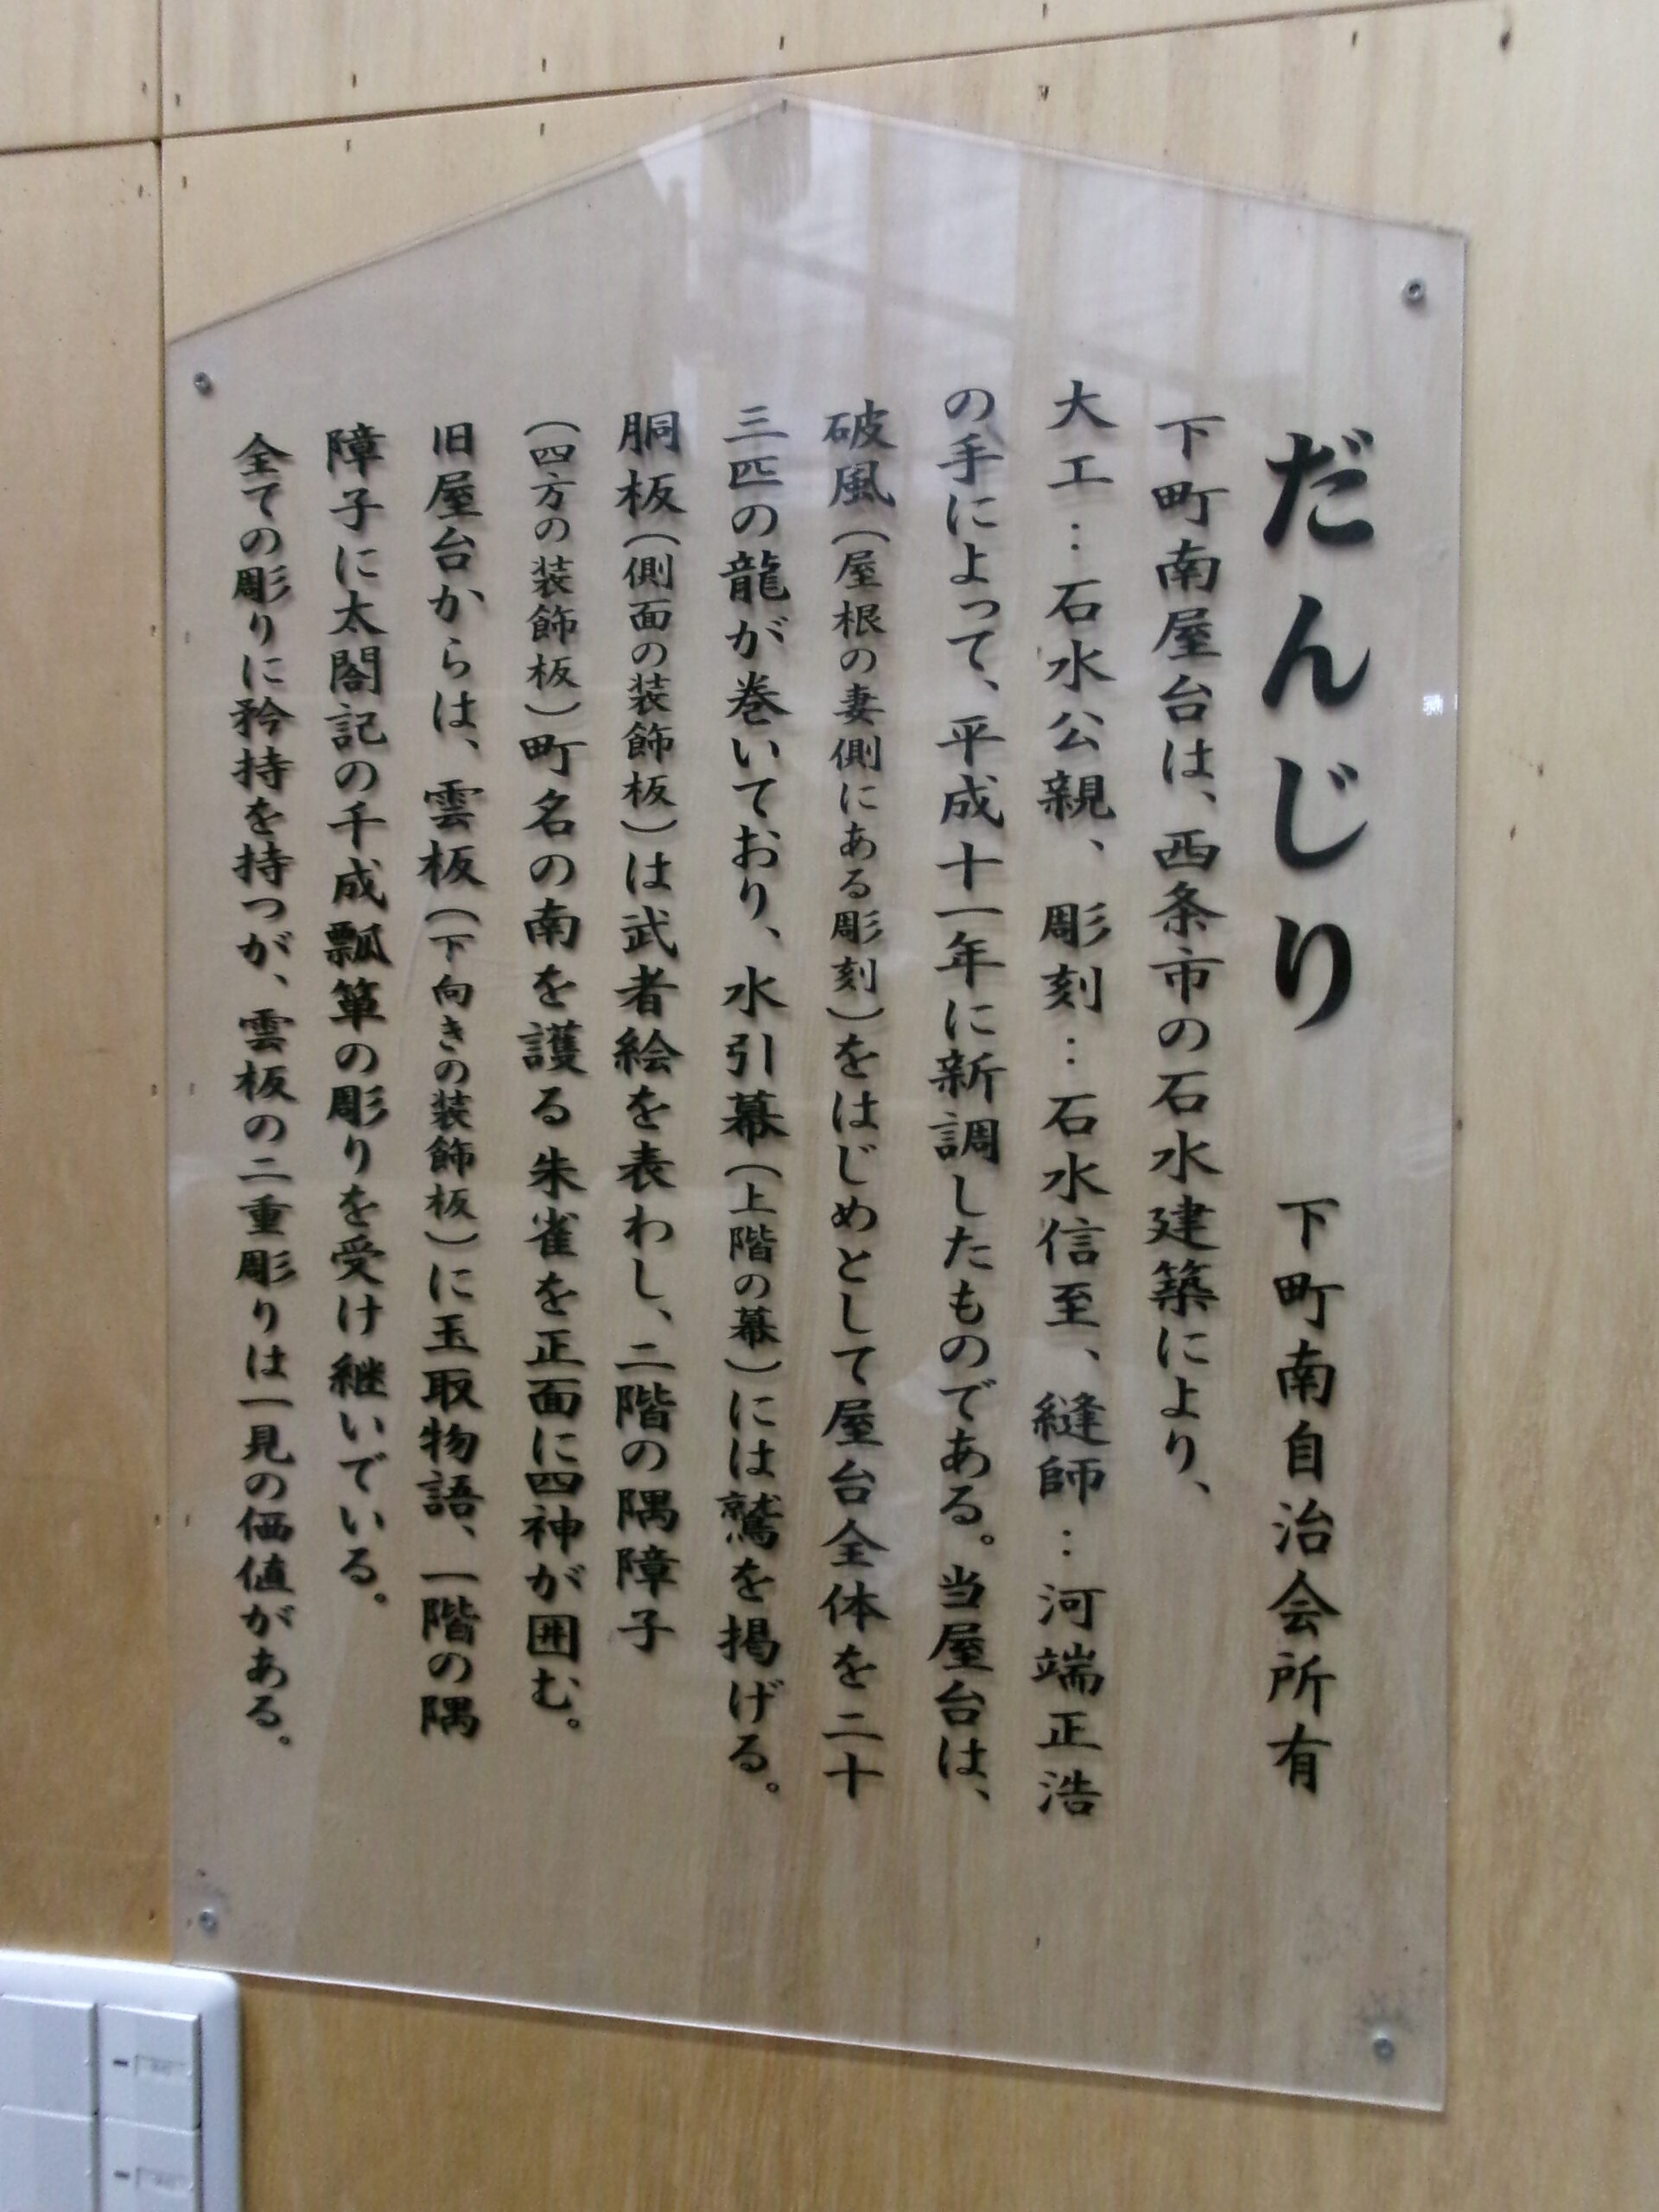 だんじり　下町南自治会所有
下町南屋台は、西条市の石水建築により、
大工…石水公親、彫刻…石水信至、縫師…河端正浩
の手によって、平成十一年に新調したものである。当屋台は、
破風（屋根の妻側にある彫刻）をはじめとして屋台全体を二十
三匹の龍が巻いており、水引幕（上階の幕）には鷲を掲げる。
胴板（側面の装飾板）は武者絵を表わし、二階の隅障子
（四方の装飾板）町名の南を護る朱雀を正面に四神が囲む。
旧屋台からは、雲板（下向きの装飾板）に玉取物語、一階の隅
障子に太閤記の千成瓢箪の彫りを受け継いでいる。
全ての彫りに矜持を持つが、雲板の二重彫りは一見の価値がある。